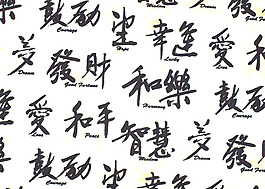 鼓励
Courage
望
Hope
幸逢
Lucky
夢
Dream
發財
Good Fortune
和樂
Harmony
愛
和平
Peace
智慧
Wisdom
夢
Dream
鼓励
Courage
愛
發財
Good Fortune
鼓励
Courage
望
Hope
幸逢